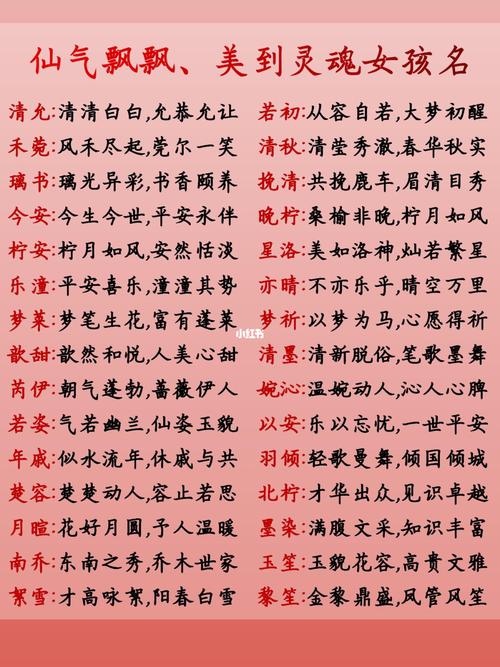 仙气飘飘、美到灵魂女孩名
清允:清清白白,允恭允让
禾菀:风禾尽起,莞尔一笑
璃书:璃光异彩,书香颐养
今安:今生今世,平安永伴
柠安:柠月如风,安然恬淡
乐潼:平安喜乐,潼潼其势
梦莱:梦笔生花,富有蓬莱
歆甜:歆然和悦,人美心甜
芮伊:朝气蓬勃,蔷薇伊人
若姿:气若幽兰,仙姿玉貌
年戚:似水流年,休戚与共
楚容:楚楚动人,容止若思
月暄:花好月圆,予人温暖
南乔:东南之秀,乔木世家
絮雪:才高咏絮,阳春白雪
若初:从容自若,大梦初醒
清秋:清莹秀澈,春华秋实
挽清:共挽鹿车,眉清目秀
晚柠:桑榆非晚,柠月如风
星洛:美如洛神,灿若繁星
亦晴:不亦乐乎,晴空万里
梦祈:以梦为马,心愿得祈
清墨:清新脱俗,笔歌墨舞
婉沁:温婉动人,沁人心脾
以安:乐以忘忧,一世平安
羽倾:轻歌曼舞,倾国倾城
北柠:才华出众,见识卓越
墨染:满腹文采,知识丰富
玉笙:玉貌花容,高贵文雅
黎笙:金黎鼎盛,风管风笙
小红书